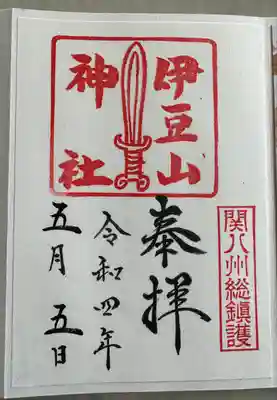 伊豆山
神社
関八州総鎮護
奉拝
令和四年
五月五日